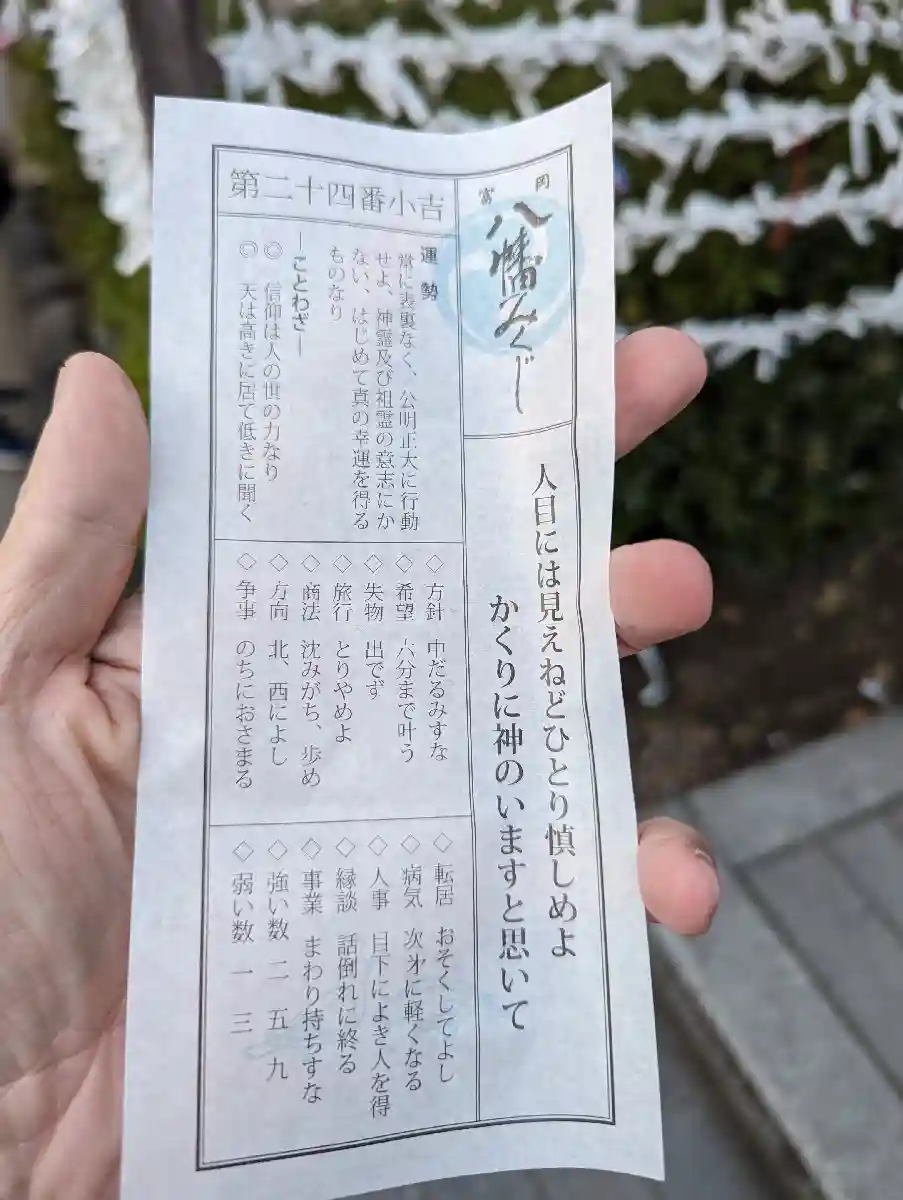 富岡
八幡みくじ
人目には見えねどひとり慎しめよ
かくりに神のいますと思いて
第二十四番小吉
運勢
常に表裏なく、公明正大に行動
せよ、神霊及び祖霊の意志にか
ない、はじめて真の幸運を得る
ものなり
―ことわざ―
◎ 信仰は人の世の力なり
◎ 天は高きに居て低きに聞く
◇ 方針 中だるみすな
◇ 希望 六分まで叶う
◇ 失物 出でず
◇ 旅行 とりやめよ
◇ 商法 沈みがち、歩め
◇ 方向 北、西によし
◇ 争事 のちにおさまる
◇ 転居 おそくしてよし
◇ 病気 次才に軽くなる
◇ 人事 目下によき人を得
◇ 縁談 話倒れに終る
◇ 事業 まわり持ちすな
◇ 強い数 二 五 九
◇ 弱い数 一 三